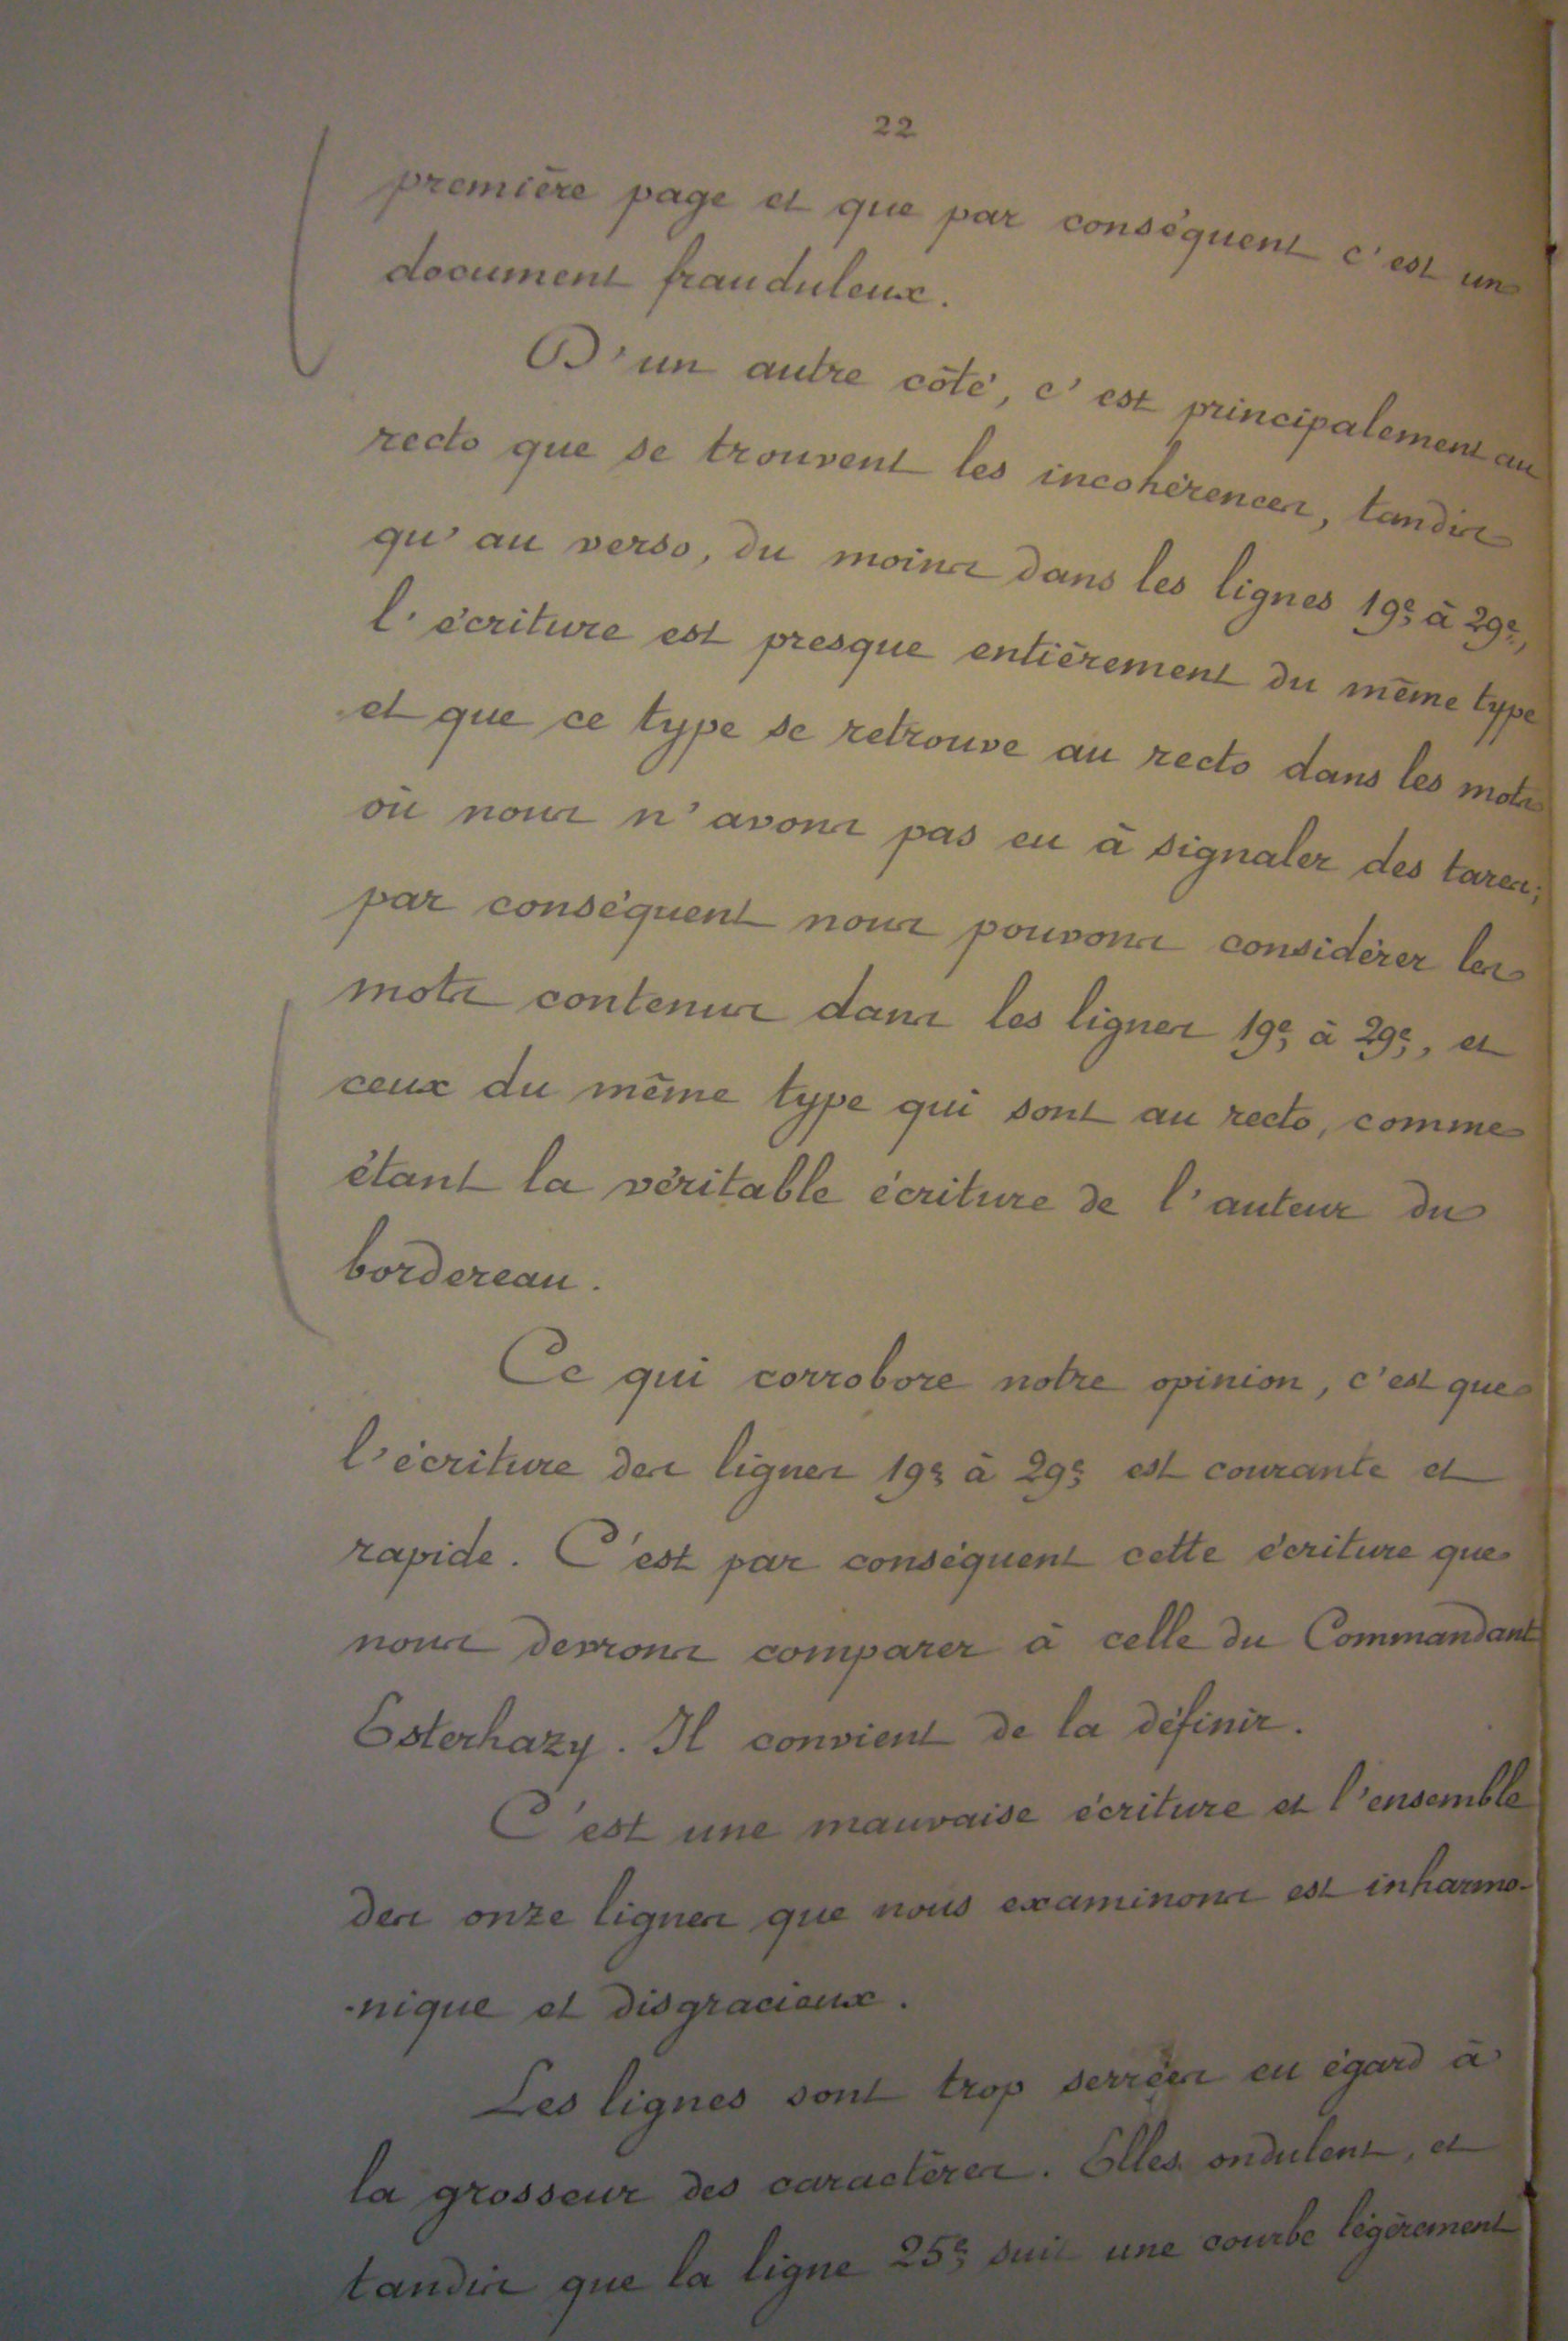 22
première page et que par conséquent c'est un
document frauduleux.
D'un autre côté, c'est principalement au
recto que se trouvent les incohérences, tandis
qu'au verso, du moins dans les lignes 19e à 29e,
l'écriture est presque entièrement du même type
et que ce type se retrouve au recto dans les mots
où nous n'avons pas eu à signaler des tares;
par conséquent nous pouvons considérer les
mots contenus dans les lignes 19e à 29e, et
ceux du même type qui sont au recto, comme
étant la véritable écriture de l'auteur du
bordereau.
Ce qui corrobore notre opinion, c'est que
l'écriture des lignes 19e à 29e est courante et
rapide. C'est par conséquent cette écriture que
nous devrons comparer à celle du Commandant
Esterhazy. Il convient de la définir.
C'est une mauvaise écriture et l'ensemble
des onze lignes que nous examinons est inharmo-
-nique et disgracieux.
Les lignes sont trop serrées eu égard à
la grosseur des caractères. Elles ondulent, et
tandis que la ligne 25e suit une courbe légèrement